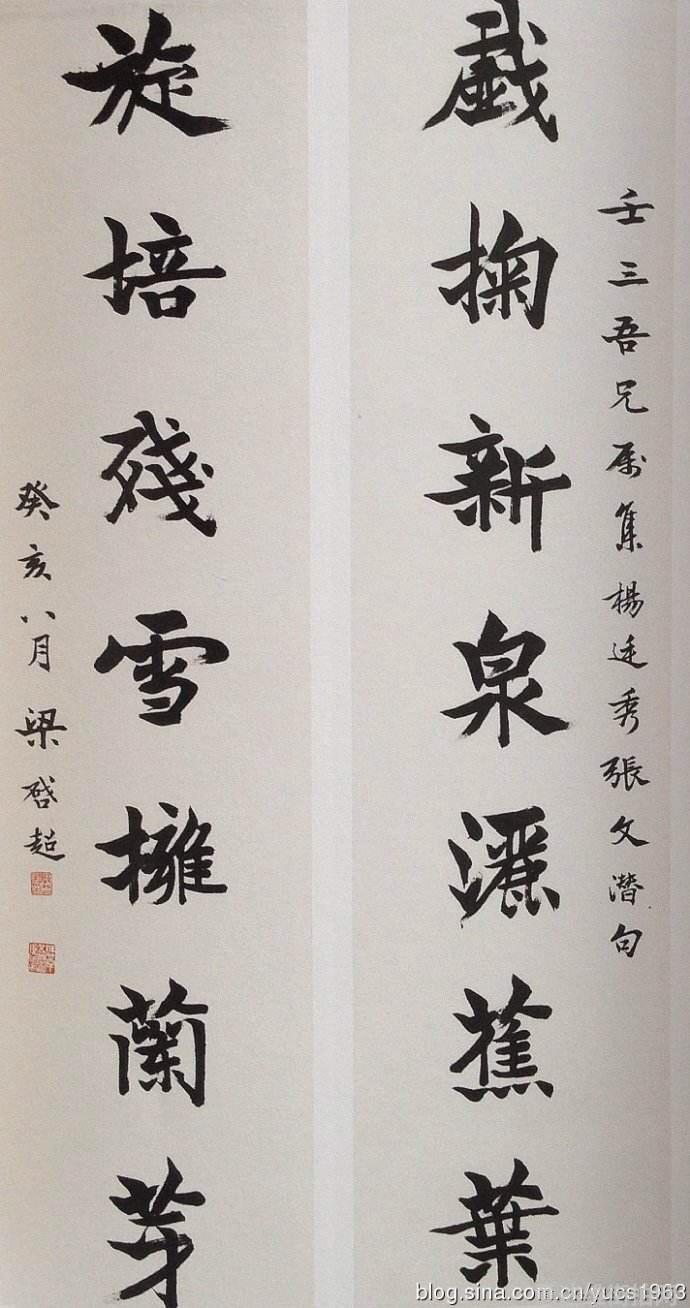 壬三吾兄属集楊廷秀張文潛句
戲掬新泉灑蕉葉
旋培殘雪擁蘭芽
癸亥八月梁啓超
blog.sina.com.cn/yucs1963